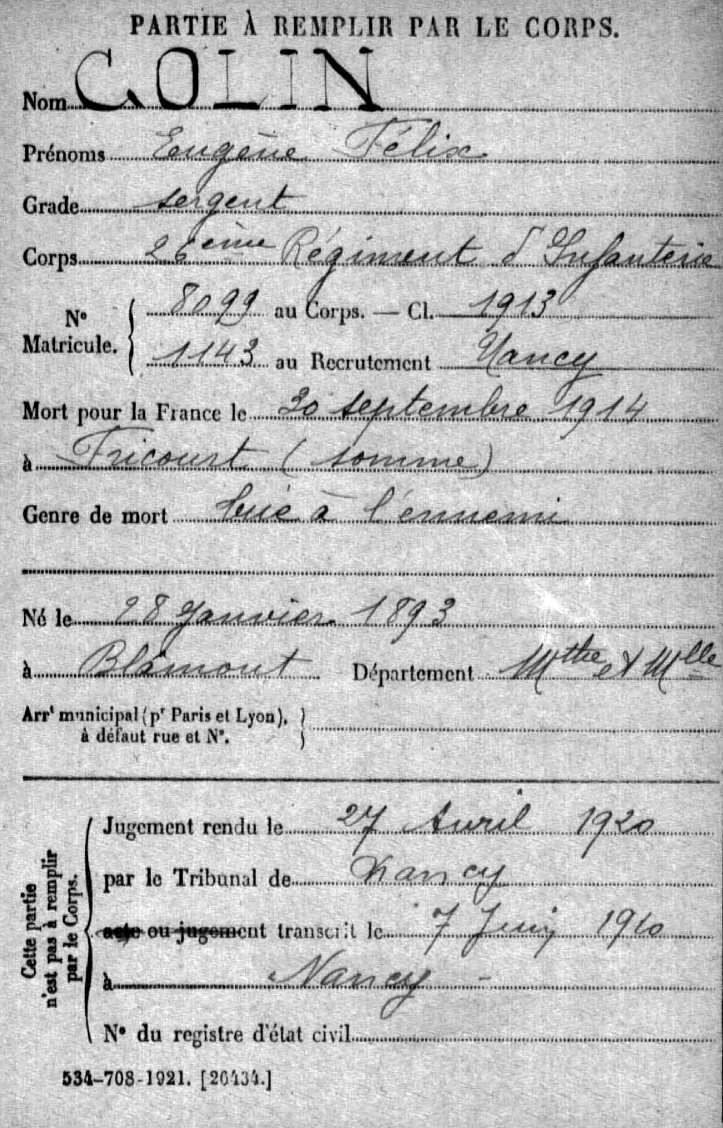 PARTIE À REMPLIR PAR LE CORPS.
Nom COLIN
Prénoms Eugène Félix
Grade sergent
Corps 26ème Régiment d'Infanterie
N° Matricule. 8099 au Corps. — Cl. 1913
1143 au Recrutement Nancy
Mort pour la France le 30 septembre 1914
à Fricourt (somme)
Genre de mort tué à l'ennemi
Né le 28 Janvier 1893
à Blâmont Département Mthe et Mlle
Arrt municipal (pr Paris et Lyon),
à défaut rue et N°.
Cette partie n'est pas à remplir par le Corps.
Jugement rendu le 27 Avril 1920
par le Tribunal de Nancy
acte ou jugement transcrit le 7 Juin 1920
à Nancy -
N° du registre d'état civil
534-708-1921. [26434.]